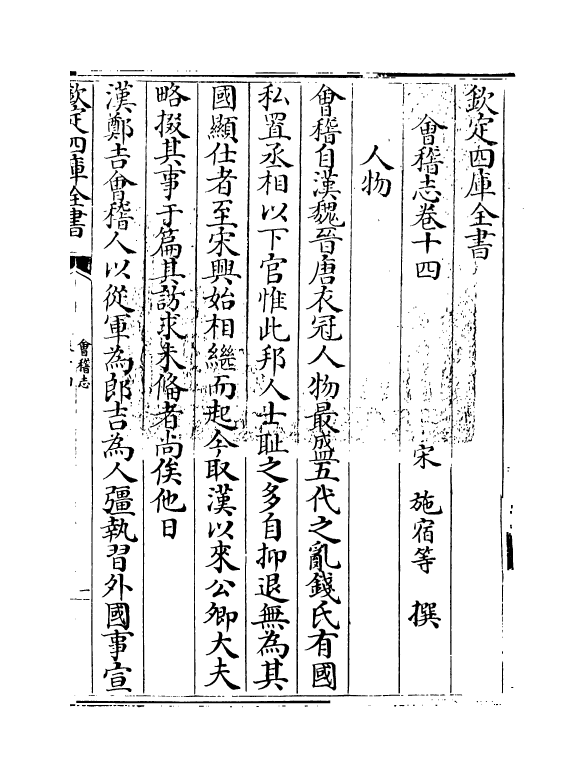 欽定四庫全書
會稽志卷十四
宋 施宿等 撰
人物
會稽自漢魏晉唐衣冠人物最盛五代之亂錢氏有國
私置丞相以下官惟此邦人士耻之多自抑退無為其
國顯仕者至宋興始相繼而起今取漢以來公卿大夫
略掇其事于篇其訪求未備者尚俟他日
漢鄭吉會稽人以從軍為郎吉為人彊執習外國事宣
欽定四庫全書
會稽志
一